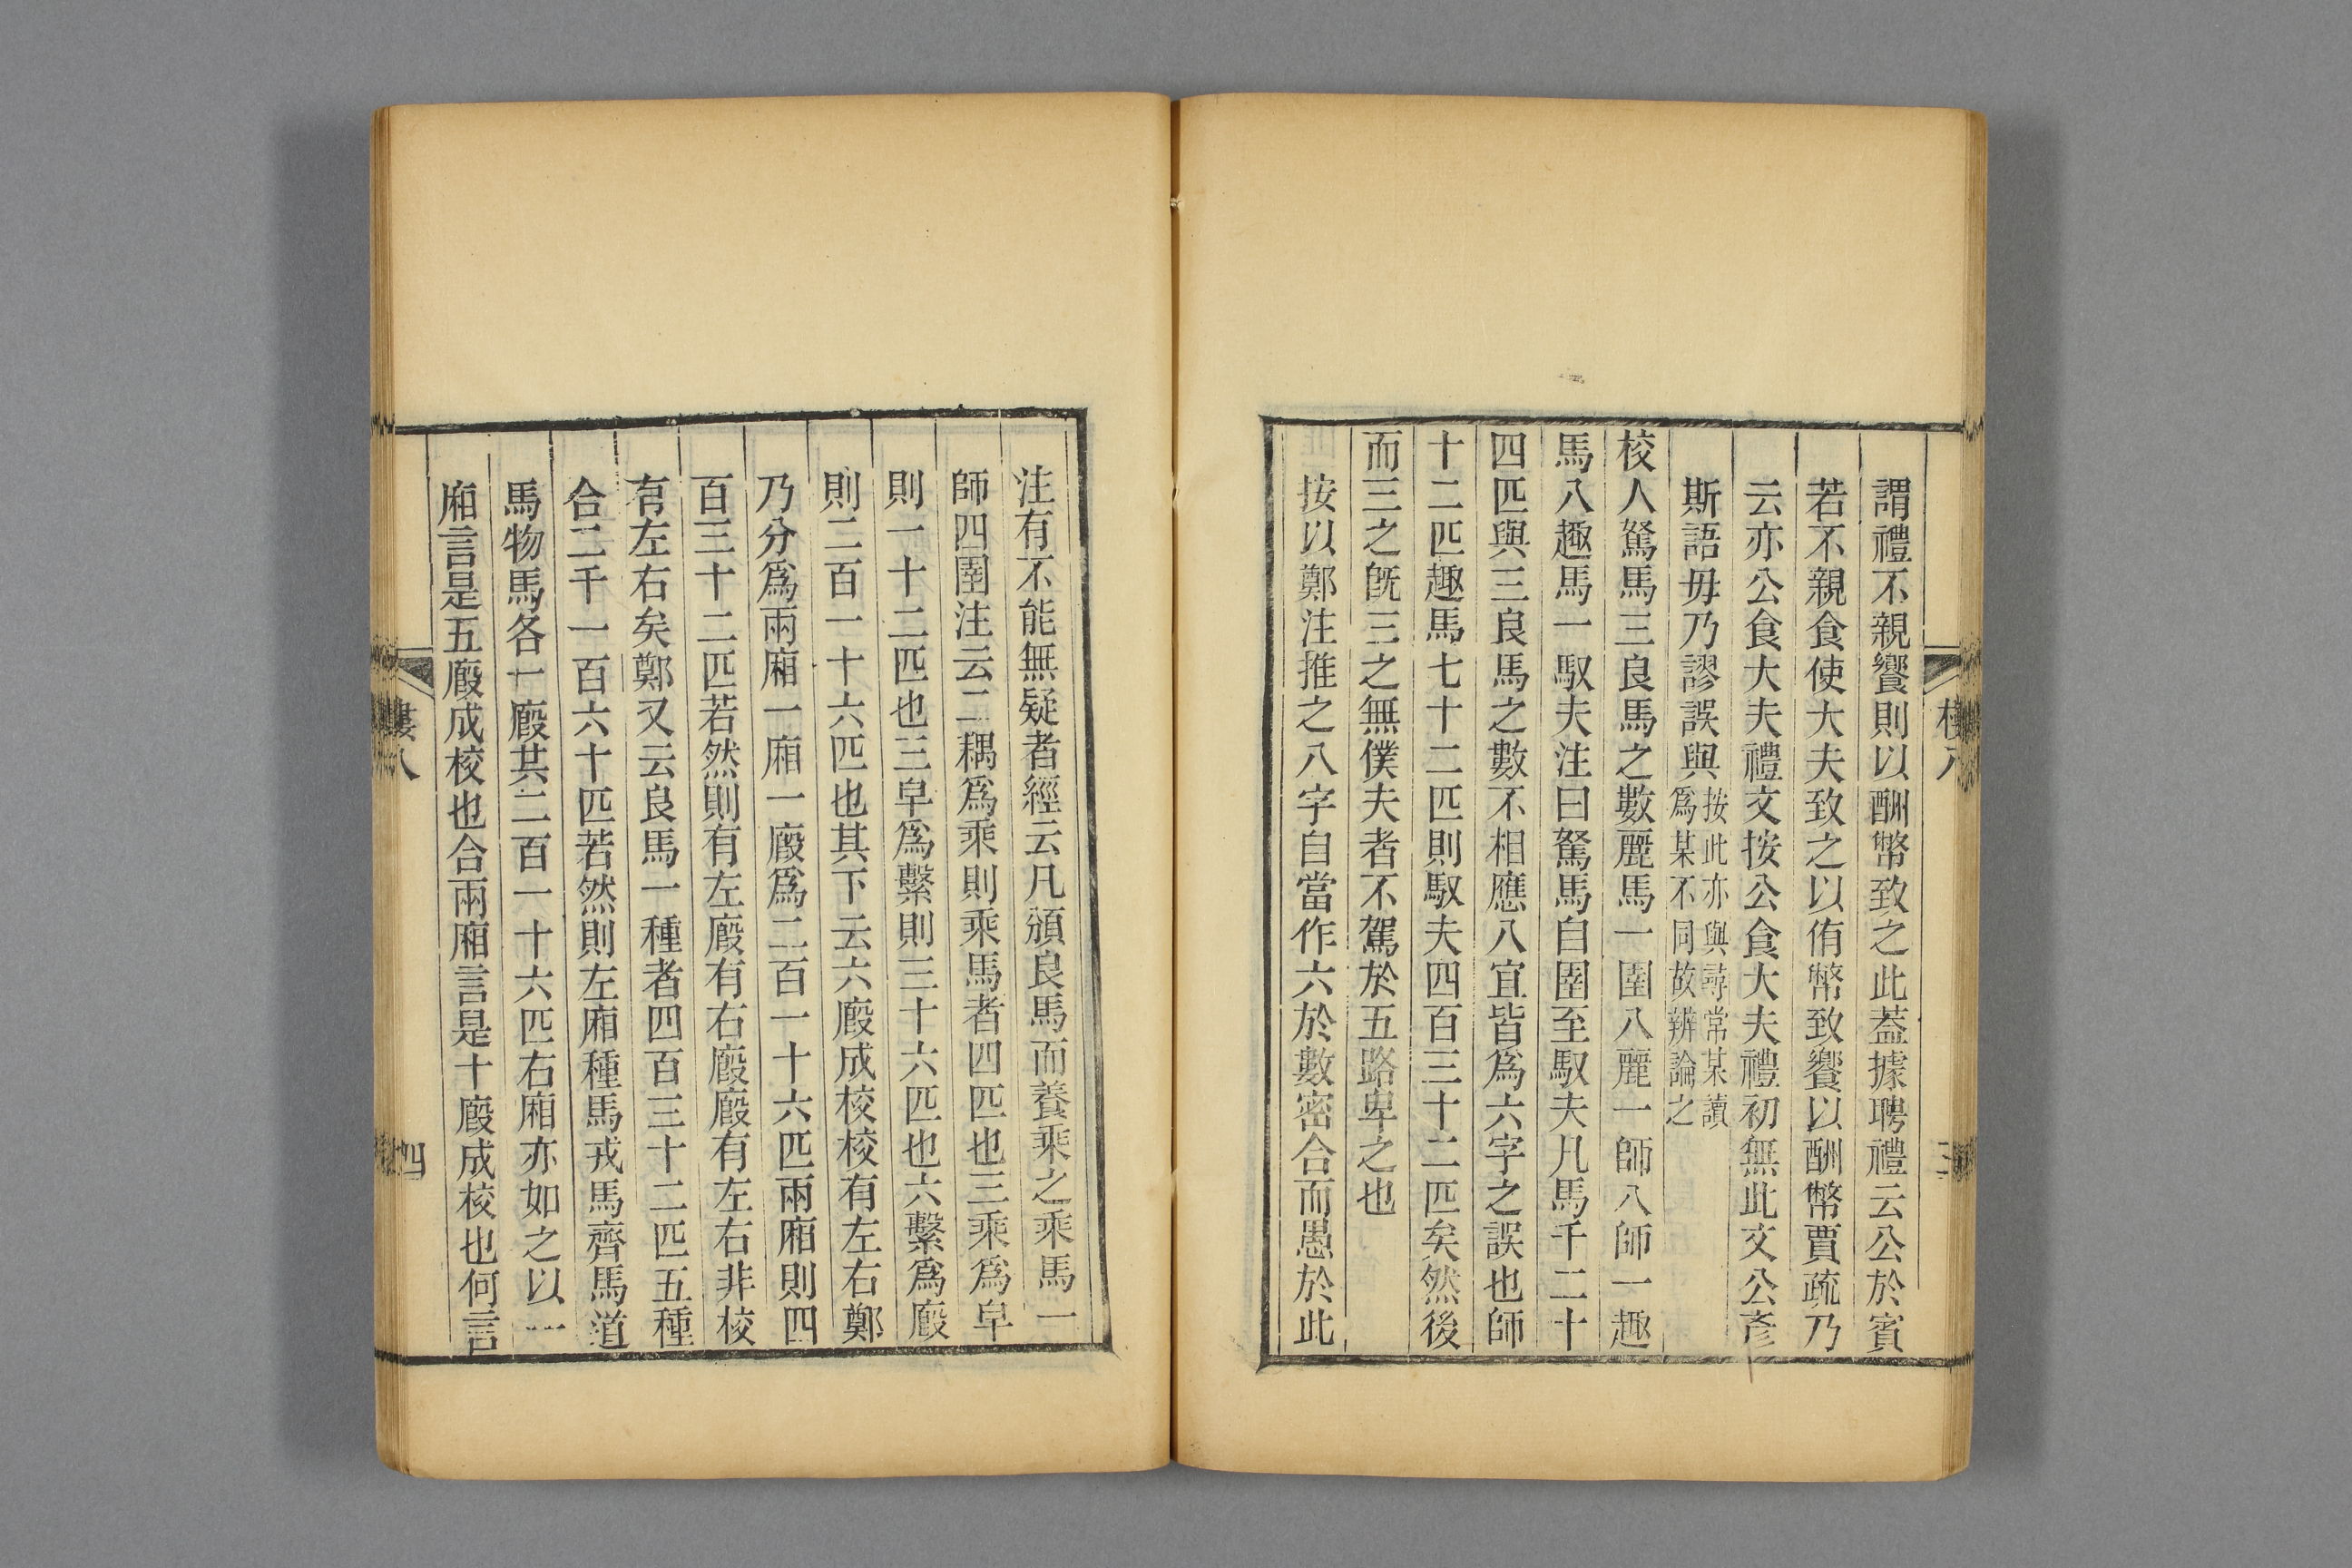 謂禮不親饗則以酬幣致之此葢據聘禮云公於賓
若不親食使大夫致之以侑幣致饗以酬幣賈疏乃
云亦公食大夫禮文按公食大夫禮初無此文公彥
斯語毋乃謬誤與按此亦與尋常某讀
爲某不同故辨論之
校人駑馬三良馬之數麗馬一圉八麗一師八師一趣
馬八趣馬一馭夫注曰駑馬自圉至馭夫凡馬千二十
四匹與三良馬之數不相應八宜皆爲六字之誤也師
十二匹趣馬七十二匹則馭夫四百三十二匹矣然後
而三之旣三之無僕夫者不駕於五路卑之也
按以鄭注推之八字自當作六於數密合而愚於此
三
注有不能無疑者經云凡頒良馬而養乘之乘馬一
師四圉注云二耦爲乘則乘馬者四匹也三乘爲皁
則一十二匹也三皁爲繫則三十六匹也六繫爲廄
則二百一十六匹也其下云六廄成校校有左右鄭
乃分爲兩廂一廂一廄爲二百一十六匹兩廂則四
百三十二匹若然則有左廄有右廄廄有左右非校
有左右矣鄭又云良馬一種者四百三十二匹五種
合二千一百六十匹若然則左廂種馬戎馬齊馬道
馬物馬各一廄其二百一十六匹右廂亦如之以一
廂言是五廄成校也合兩廂言是十廄成校也何言
樓八
四